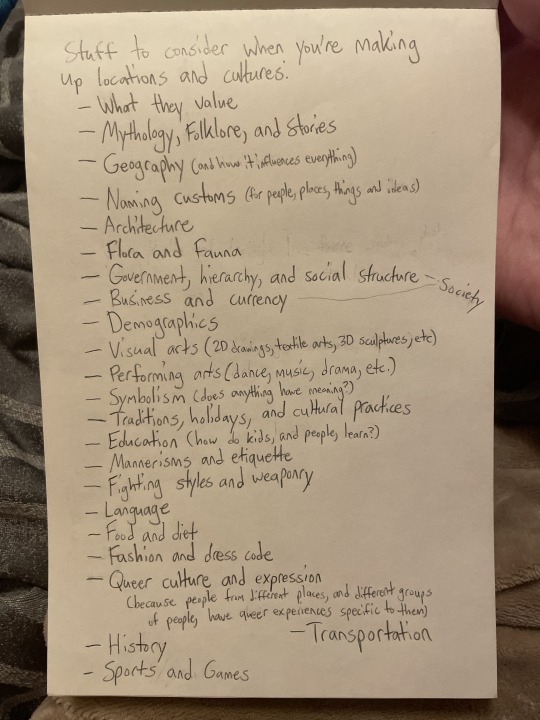 Stuff to consider when you're making
up locations and cultures:
- What they value
- Mythology, Folklore, and Stories
- Geography (and how it influences everything)
- Naming customs (for people, places, things and ideas)
- Architecture
- Flora and Fauna
- Government, hierarchy, and social structure - Society
- Business and currency
- Demographics
- Visual arts (2D drawings, textile arts, 3D sculptures, etc)
- Performing arts (dance, music, drama, etc.)
- Symbolism (does anything have meaning?)
- Traditions, holidays, and cultural practices
- Education (how do kids, and people, learn?)
- Mannerisms and etiquette
- Fighting styles and weaponry
- Language
- Food and diet
- Fashion and dress code
- Queer culture and expression
(because people from different places, and different groups
of people, have queer experiences specific to them)
- Transportation
- History
- Sports and Games